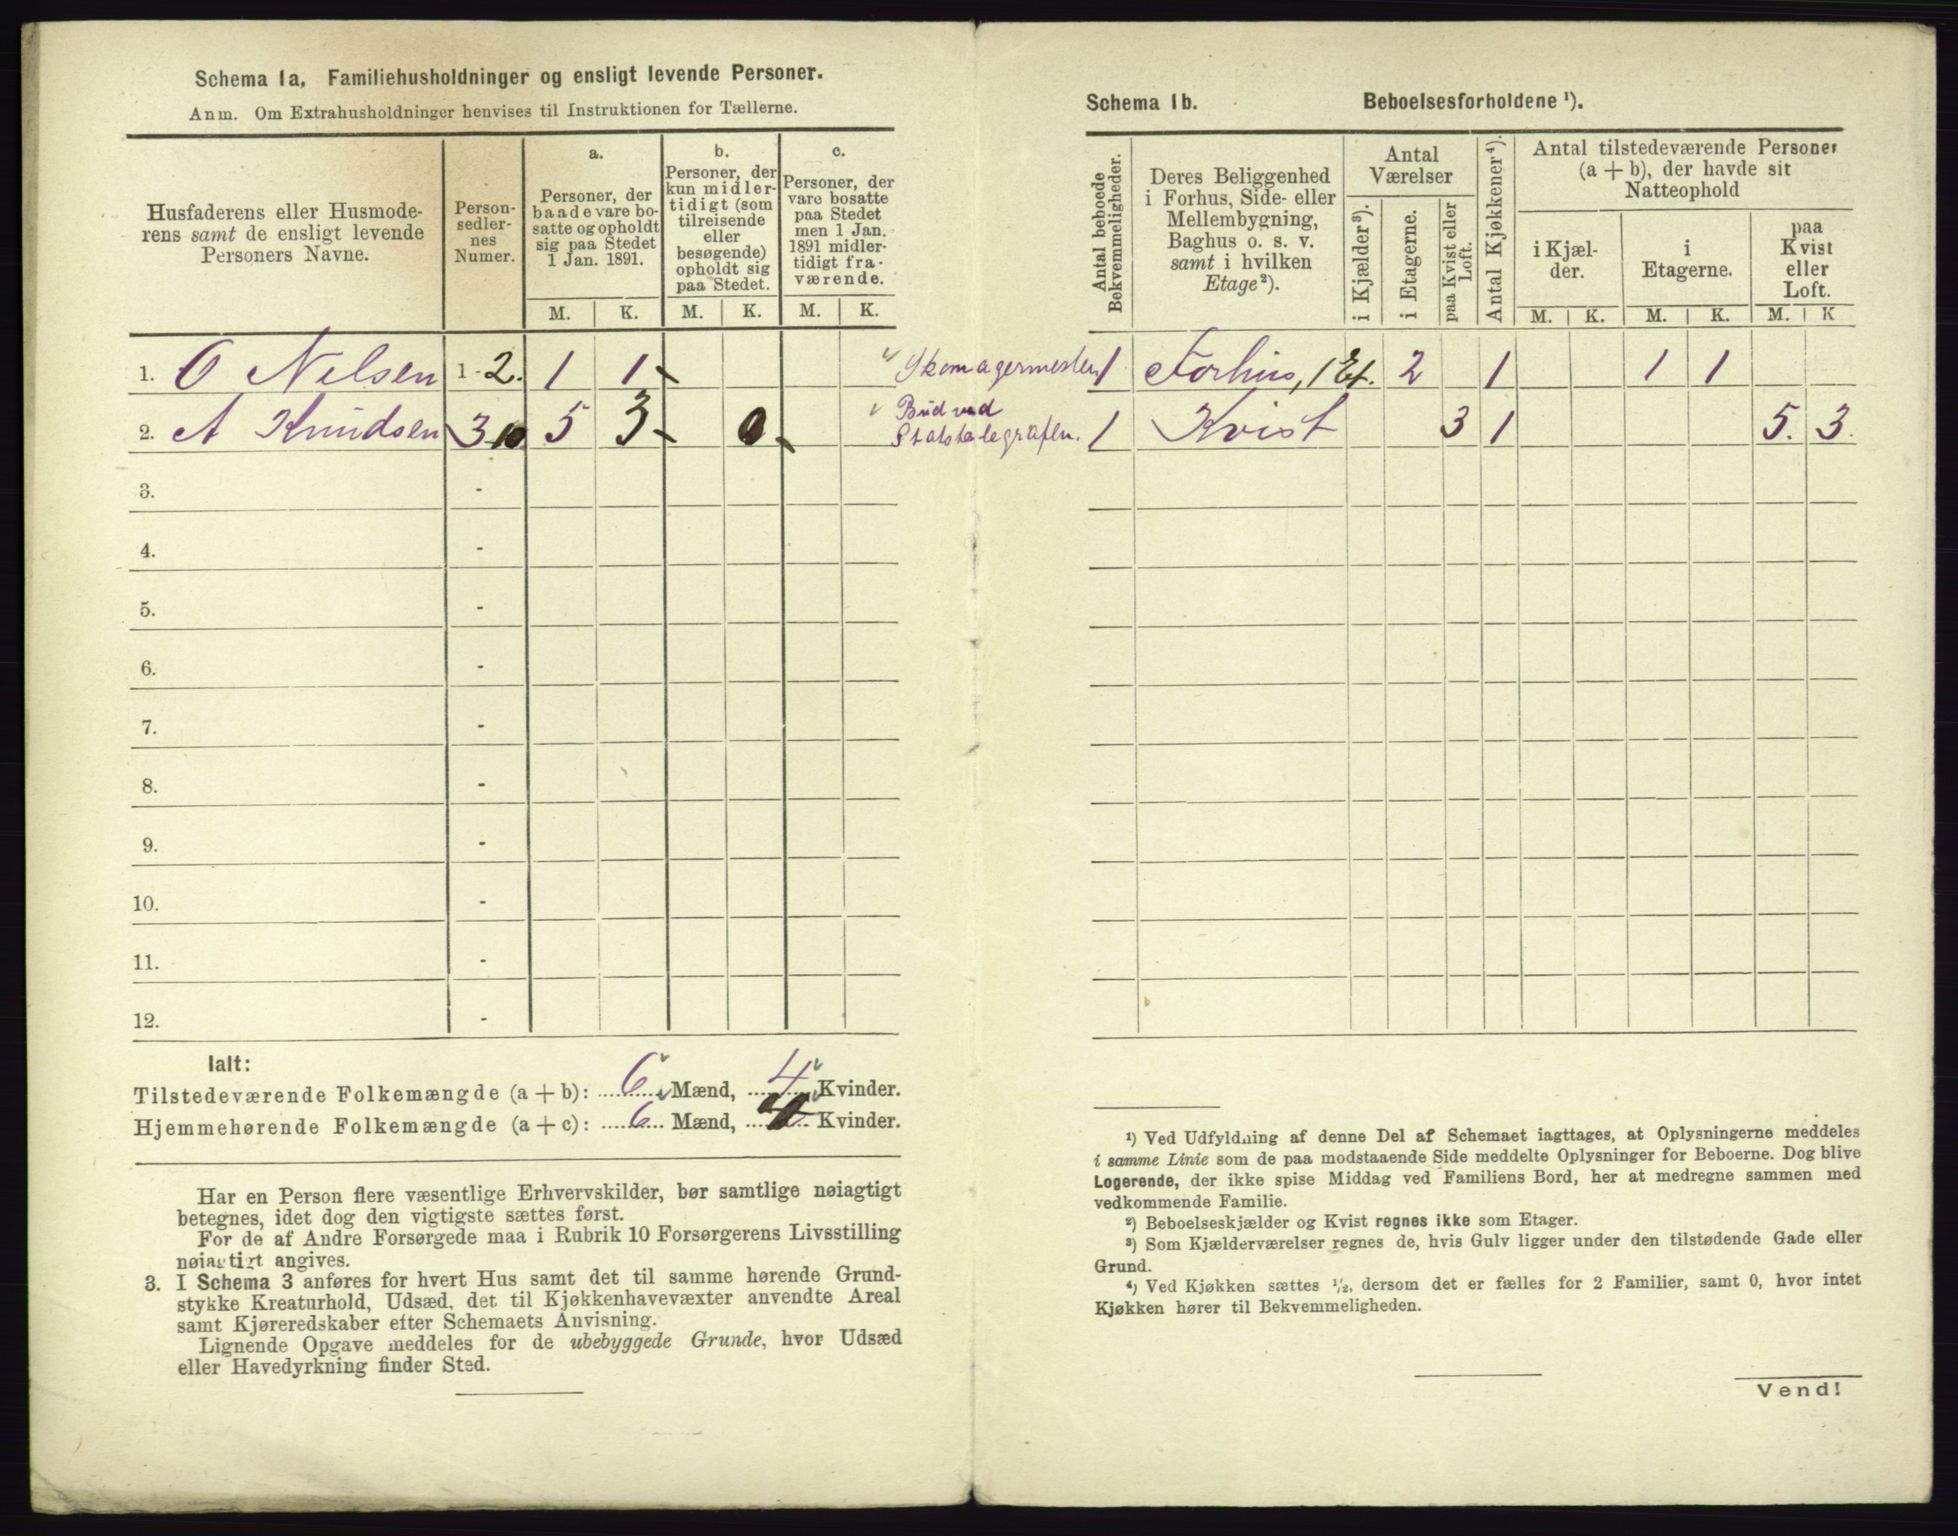 Schema 1a, Familiehusholdninger og ensligt levende Personer.
Anm. Om Extrahusholdninger henvises til Instruktionen for Tællerne.
Husfaderens eller Husmode-
rens samt de ensligt levende
Personers Navne.
Person-
sedler-
nes
Numer.
a.
Personer, der
baade vare bo-
satte og opholdt
sig paa Stedet
1 Jan. 1891.
b.
Personer, der
kun midler-
tidigt (som
tilreisende
eller
besøgende)
opholdt sig
paa Stedet.
c.
Personer, der
vare bosatte
paa Stedet
men 1 Jan.
1891 midler-
tidigt fra-
værende.
M. K. M. K. M. K.
1. O Nelsen 1 - 2. 1 1 Skomagermester
2. A Knudsen 3-10 5 3 0 Bud ved
Statstelegrafen.
3. -
4. -
5. -
6. -
7. -
8. -
9. -
10. -
11. -
12. -
Ialt:
Tilstedeværende Folkemængde (a + b): 6 Mænd, 4 Kvinder.
Hjemmehørende Folkemængde (a + c): 6 Mænd, 4 Kvinder.
Har en Person flere væsentlige Erhvervskilder, bør samtlige nøiagtigt
betegnes, idet dog den vigtigste sættes først.
For de af Andre Forsørgede maa i Rubrik 10 Forsørgerens Livsstilling
nøiagtigt angives.
3. I Schema 3 anføres for hvert Hus samt det til samme hørende Grund-
stykke Kreaturhold, Udsæd, det til Kjøkkenhavevæxter anvendte Areal
samt Kjøreredskaber efter Schemaets Anvisning.
Lignende Opgave meddeles for de ubebyggede Grunde, hvor Udsæd
eller Havedyrkning finder Sted.
Schema 1b. Beboelsesforholdene ¹).
Antal beboede
Bekvemmeligheder.
Deres Beliggenhed
i Forhus, Side- eller
Mellembygning,
Baghus o. s. v.
samt i hvilken
Etage²).
Antal
Værelser
i Kjælder³).
i Etagerne.
paa Kvist eller
Loft.
Antal Kjøkkener⁴).
Antal tilstedeværende Personer
(a + b), der havde sit
Natteophold
i Kjæl-
der.
i
Etagerne.
paa
Kvist
eller
Loft.
M. K. M. K. M. K
1 Forhus, 1 Et. 2 1 1 1
1 Kvist 3 1 5. 3.
¹) Ved Udfyldning af denne Del af Schemaet iagttages, at Oplysningerne meddeles
i samme Linie som de paa modstaaende Side meddelte Oplysninger for Beboerne. Dog blive
Logerende, der ikke spise Middag ved Familiens Bord, her at medregne sammen med
vedkommende Familie.
²) Beboelseskjælder og Kvist regnes ikke som Etager.
³) Som Kjælderværelser regnes de, hvis Gulv ligger under den tilstødende Gade eller
Grund.
⁴) Ved Kjøkken sættes ½, dersom det er fælles for 2 Familier, samt 0, hvor intet
Kjøkken hører til Bekvemmeligheden.
Vend!